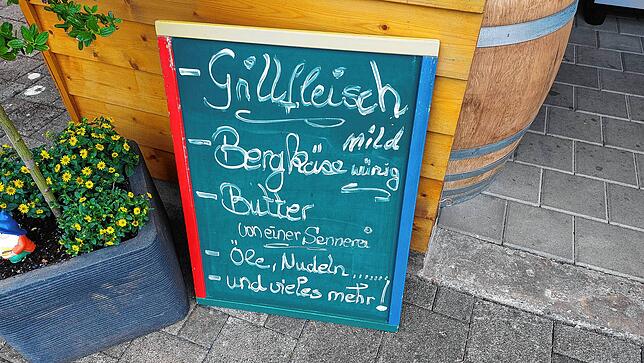 - Grillfleisch
mild
- Bergkäse würzig
- Butter
von einer Sennerei
- Öle, Nudeln......
- und vieles mehr!